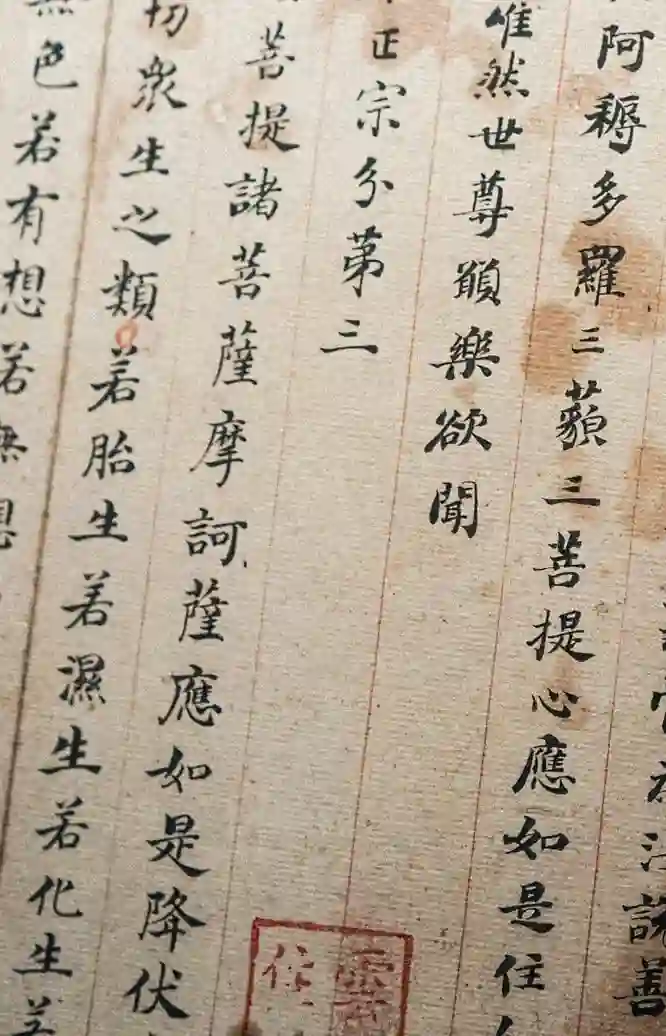 說善
阿耨多羅三藐三菩提心應如是住
唯然世尊願樂欲聞
正宗分苐三
菩提諸菩薩摩訶薩應如是降伏
切衆生之類若胎生若濕生若化生若
無色若有想若無想
雲
住